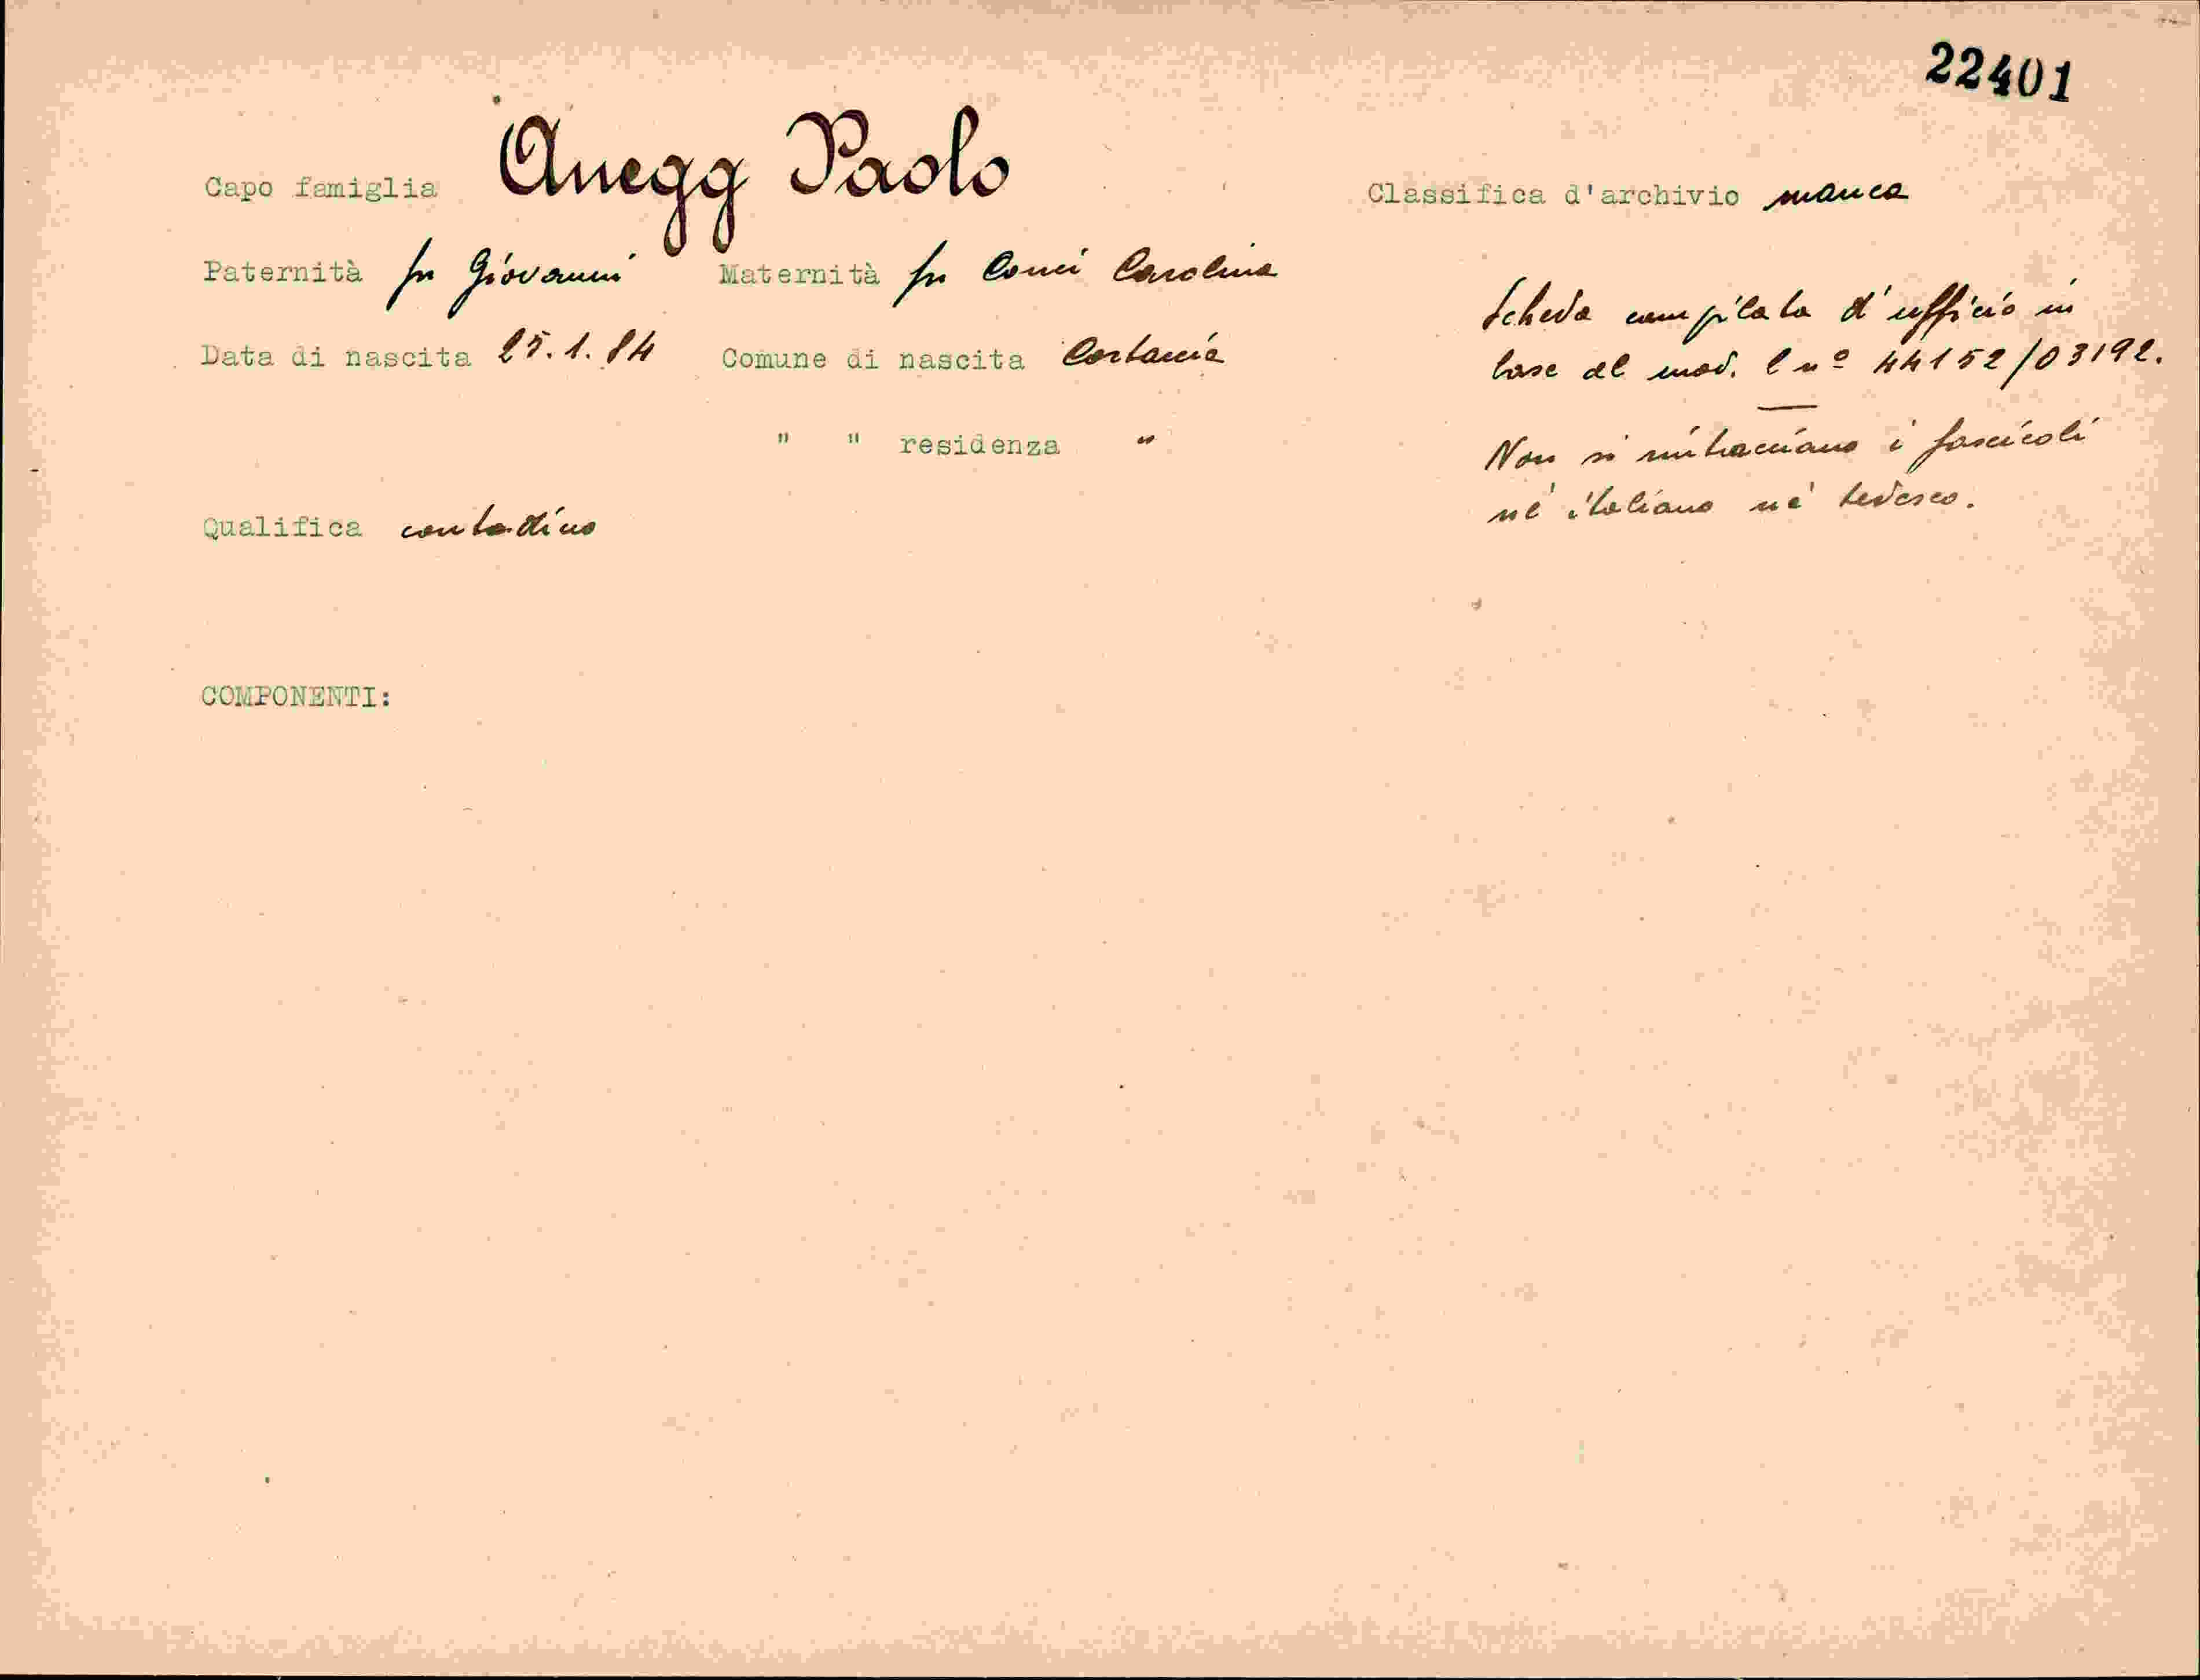 22401
Capo famiglia Anegg Paolo
Classifica d'archivio manca
Paternità fu Giovanni Maternità fu Conci Carolina
Data di nascita 25.1.84 Comune di nascita Cortaccia
" " residenza "
Qualifica contadino
Scheda compilata d'ufficio in
base al mod. l n° 44152/03192.
Non si rintracciano i fascicoli
nè italiano nè tedesco.
COMPONENTI: